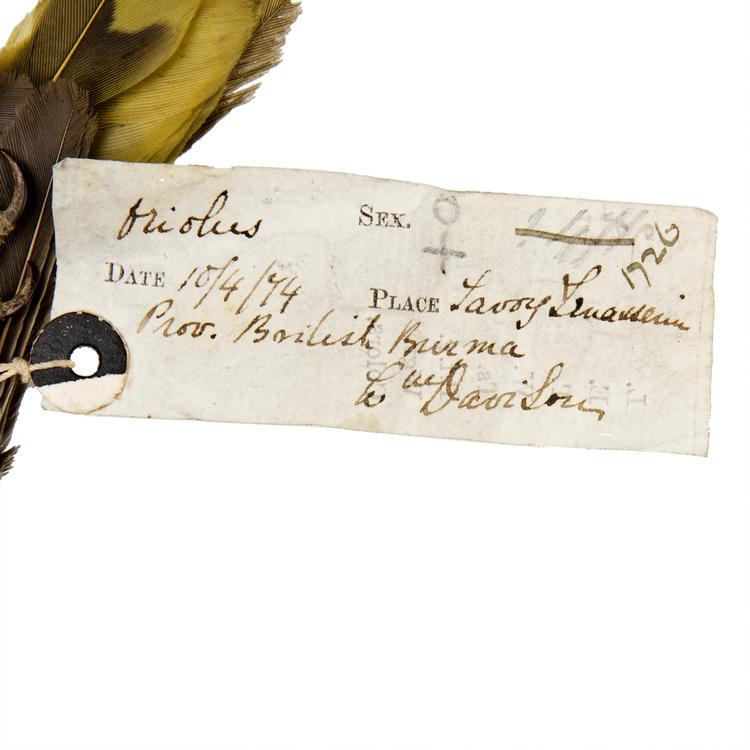 Oriolus SEX. ♀ 1726
DATE 10/4/74 PLACE Tavoy Tenasserim
Prov. British Burma
Wm Davison